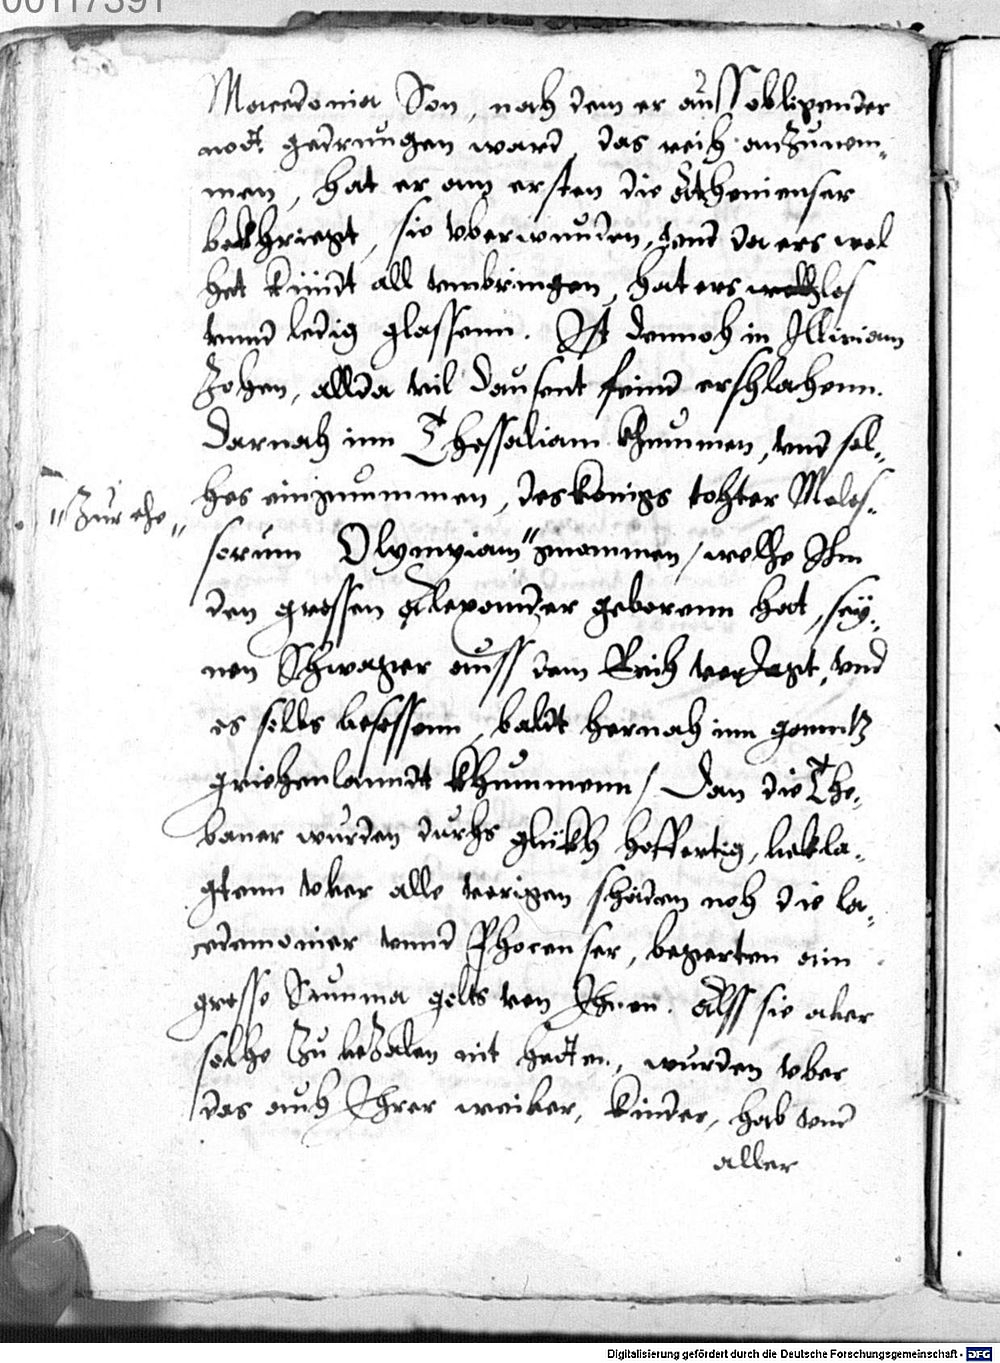 00117391
Macedonia Son, nach dem er auss obligender
nodt gedrungen ward, das reich anzunem„
men, hat er am ersten die Athenienser
bekhriegt, sie vberwunden, vnd da ers wol
het kündt all vmbringen, hat ers los
vnnd ledig glassenn. Ist dennoch in Illiriam
Zohen, allda vil dausent feind erschlahenn.
Darnach inn Thessaliam khummen, vnd sol„
hes eingnummen, des königs tochter Molos„
„ Zur ehe „
sorum Olympiam " gnommen / welche Ihm
den grossen Alexander geborenn hat, sey„
nen Schwager auss dem Reich verJagt, vnd
es selbs besessenn, baldt hernach inn ganntz
griechenlanndt khummenn / Dan die The„
baner wurden durchs glükh hoffertig, bekla„
gtenn vber alle vorigen schaden noch die la„
cedemonier vnnd Phocenser, begerten ein
grosse Summa gelts von Ihnen. Alss sie aber
solche Zu beZalen nit hedten, wurden vber
das auch Ihrer weiber, kinder, hab vnd
aller
Digitalisierung gefördert durch die Deutsche Forschungsgemeinschaft - DFG